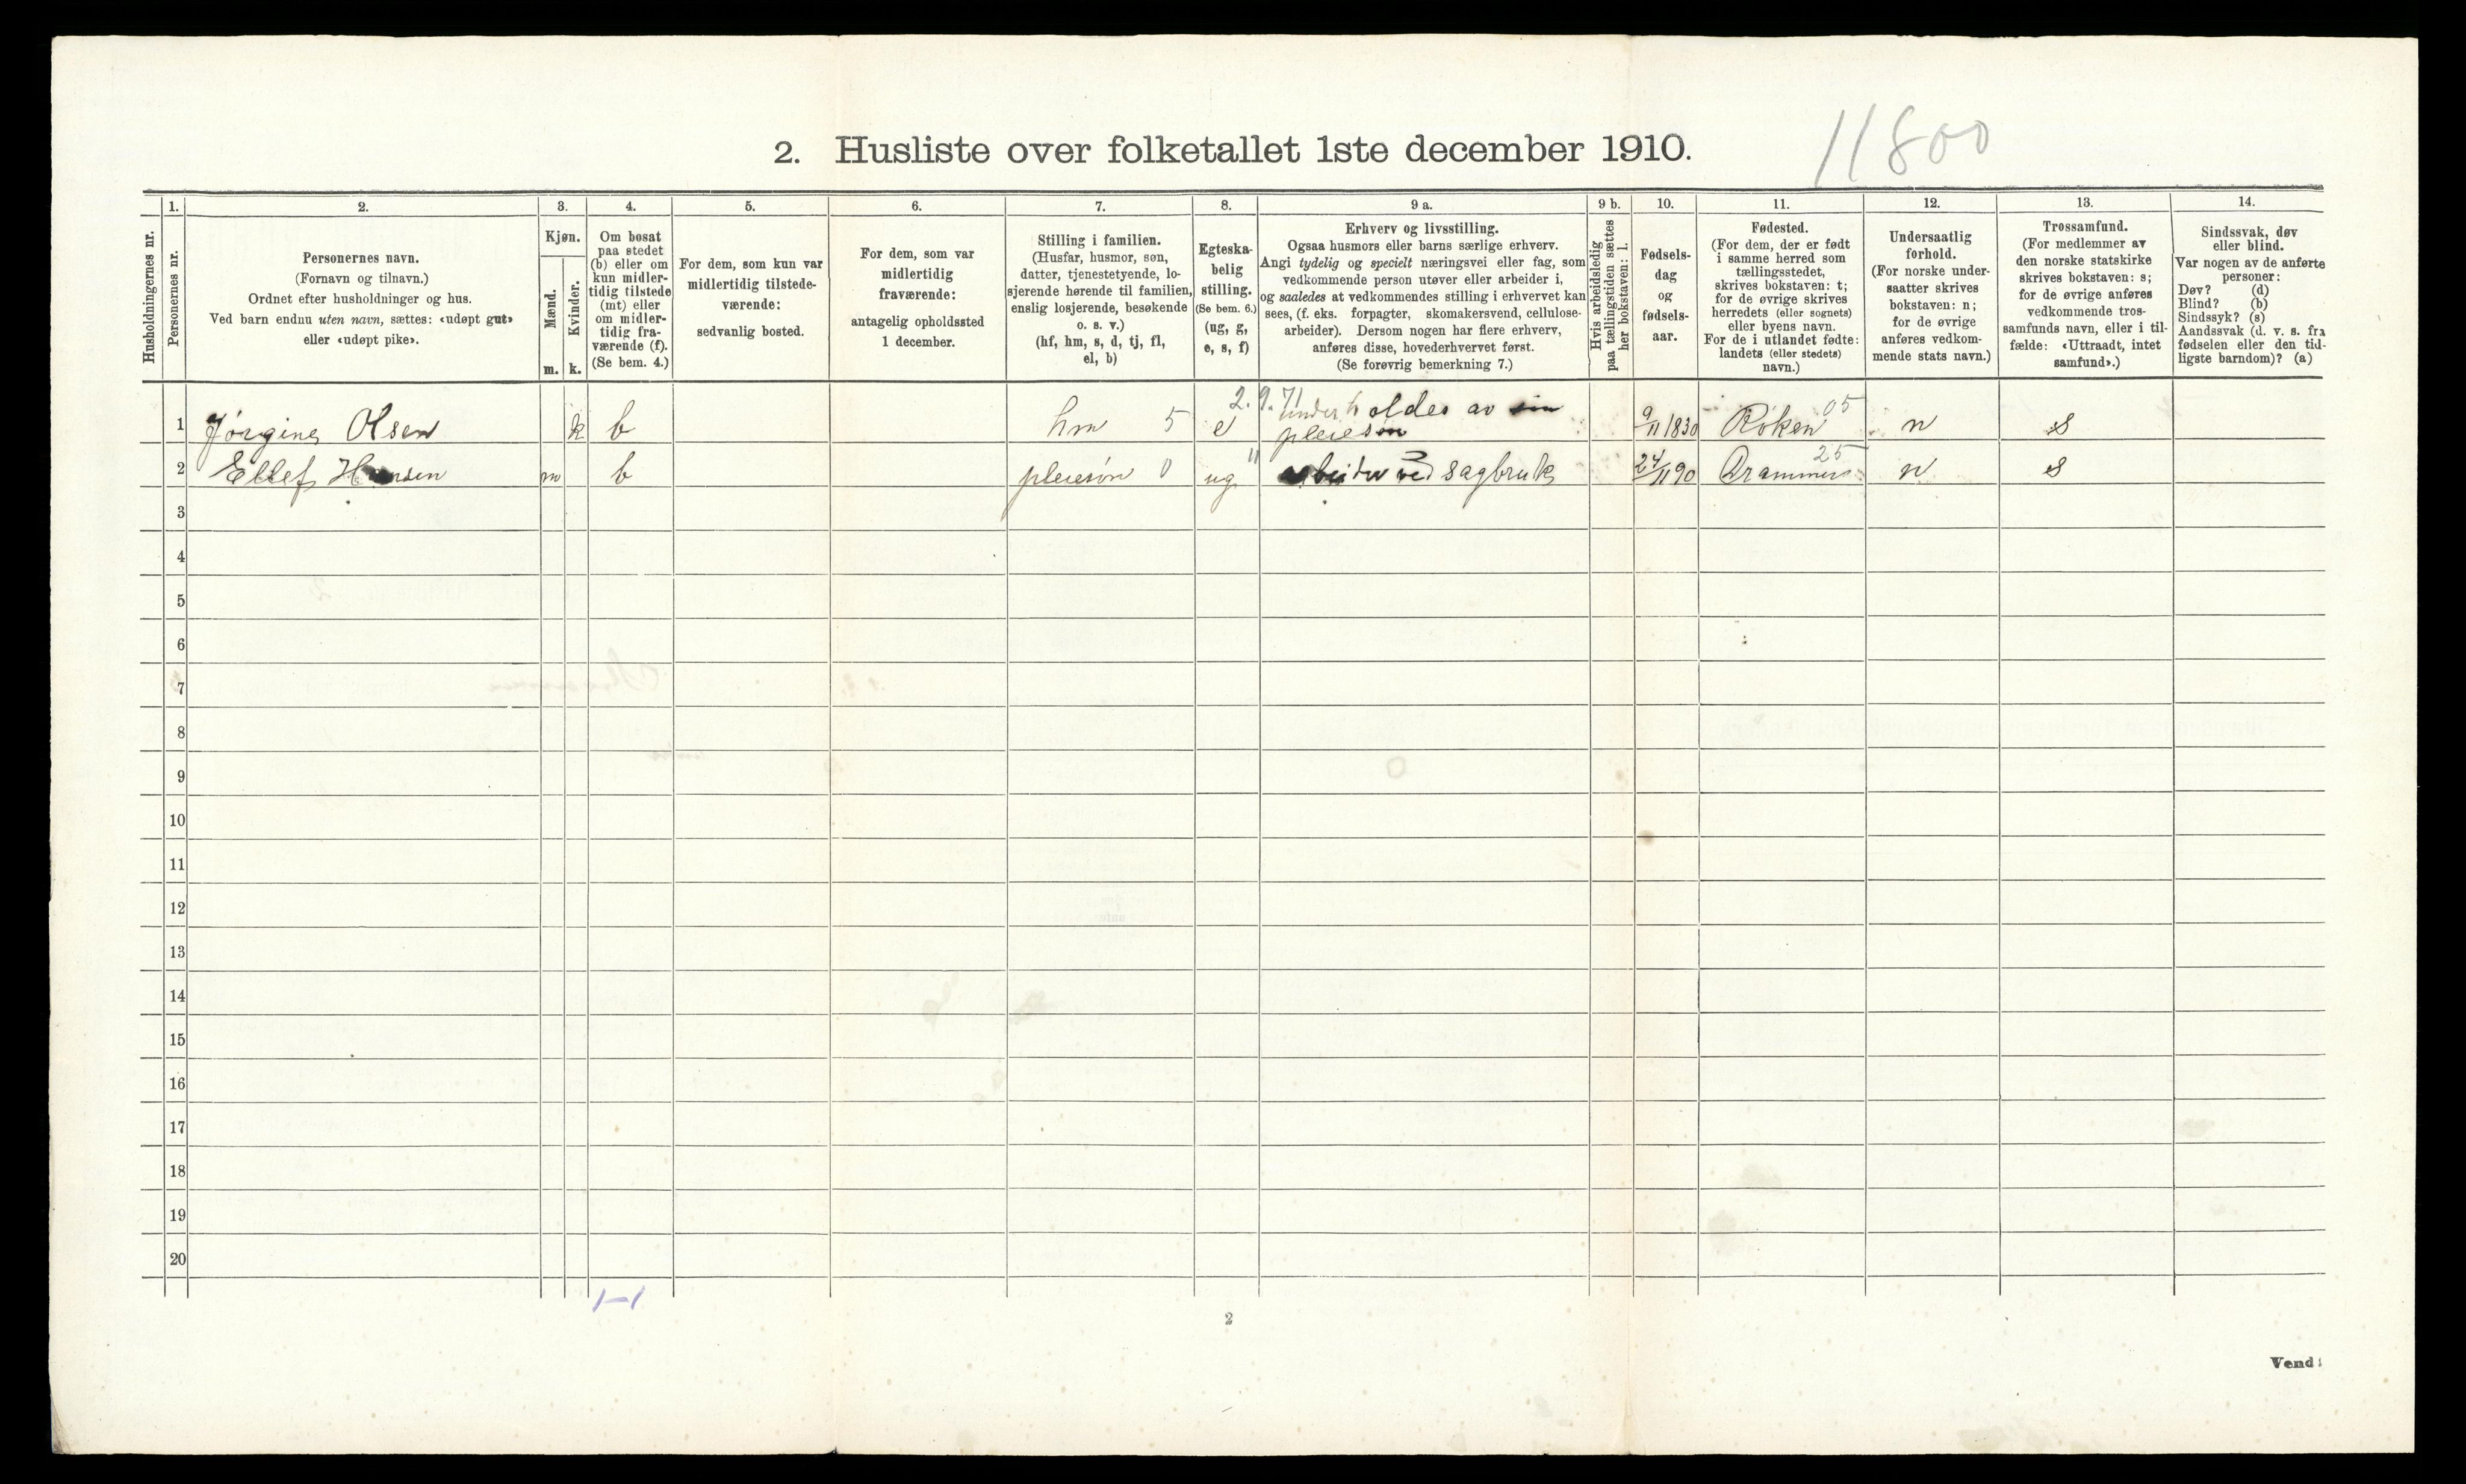 2. Husliste over folketallet 1ste december 1910.
11800
Husholdningernes nr.
1.
Personernes nr.
2.
Personernes navn.
(Fornavn og tilnavn.)
Ordnet efter husholdninger og hus.
Ved barn endnu uten navn, sættes: «udøpt gut»
eller «udøpt pike».
3.
Kjøn.
Mænd.
m.
Kvinder.
k.
4.
Om bosat
paa stedet
(b) eller om
kun midler-
tidig tilstede
(mt) eller
om midler-
tidig fra-
værende (f).
(Se bem. 4.)
5.
For dem, som kun var
midlertidig tilstede-
værende:
sedvanlig bosted.
6.
For dem, som var
midlertidig
fraværende:
antagelig opholdssted
1 december.
7.
Stilling i familien.
(Husfar, husmor, søn,
datter, tjenestetyende, lo-
sjerende hørende til familien,
enslig losjerende, besøkende
o. s. v.)
(hf, hm, s, d, tj, fl,
el, b)
8.
Egteska-
belig
stilling.
(Se bem. 6.)
(ug, g,
e, s, f)
9 a.
Erhverv og livsstilling.
Ogsaa husmors eller barns særlige erhverv.
Angi tydelig og specielt næringsvei eller fag, som
vedkommende person utøver eller arbeider i,
og saaledes at vedkommendes stilling i erhvervet kan
sees, (f. eks. forpagter, skomakersvend, cellulose-
arbeider). Dersom nogen har flere erhverv,
anføres disse, hovederhvervet først.
(Se forøvrig bemerkning 7.)
9 b.
Hvis arbeidsledig
paa tællingstiden sættes
her bokstaven: l.
10.
Fødsels-
dag
og
fødsels-
aar.
11.
Fødested.
(For dem, der er født
i samme herred som
tællingsstedet,
skrives bokstaven: t;
for de øvrige skrives
herredets (eller sognets)
eller byens navn.
For de i utlandet fødte:
landets (eller stedets)
navn.)
12.
Undersaatlig
forhold.
(For norske under-
saatter skrives
bokstaven: n;
for de øvrige
anføres vedkom-
mende stats navn.)
13.
Trossamfund.
(For medlemmer av
den norske statskirke
skrives bokstaven: s;
for de øvrige anføres
vedkommende tros-
samfunds navn, eller i til-
fælde: «Uttraadt, intet
samfund».)
14.
Sindssvak, døv
eller blind.
Var nogen av de anførte
personer:
Døv? (d)
Blind? (b)
Sindssyk? (s)
Aandssvak (d. v. s. fra
fødselen eller den tid-
ligste barndom)? (a)
2.9.71
1 Jørgine Olsen k b hm 5 e underholdes av sin 9/11 1830 Røken 05 n s
pleiesøn
2 Ellef Hansen m b pleiesøn 0 ug " arbeider ved sagbruk 24/11 90 Drammen 25 n s
3
4
5
6
7
8
9
10
11
12
13
14
15
16
17
18
19
20
1-1
2
Vend!